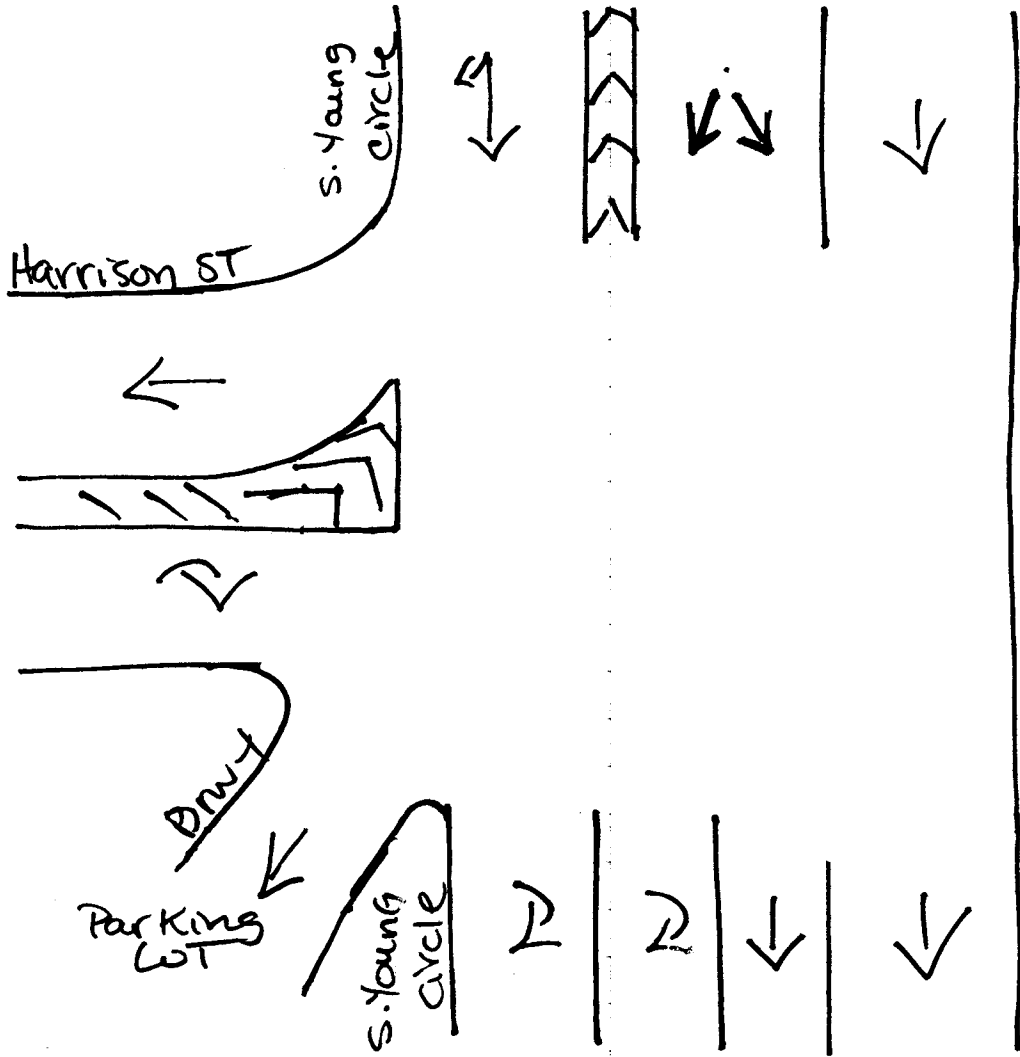 S. Young
Circle
Harrison ST
Drwy
Parking
LOT
S. Young
Circle